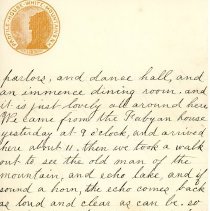 parlors, and danse hall, and
an immence dining room, and
it is just lovely all around here
We came from the Fabyan house
yesterday at 9 o'clock, and arrived
here about 11. then we took a walk
out to see the old man of the
mountain, and echo lake, and if
sound a horn, the echo comes back
as loud and clear as can be. so